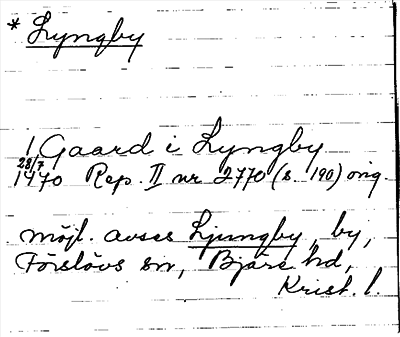 * Lyngby
1 Gaard i Lyngby
28/7
1470 Rep. II nr 2770 (s. 190) orig.
möjl. avses Ljungby, by,
Förslövs sn, Bjäre hd,
Krist. l.